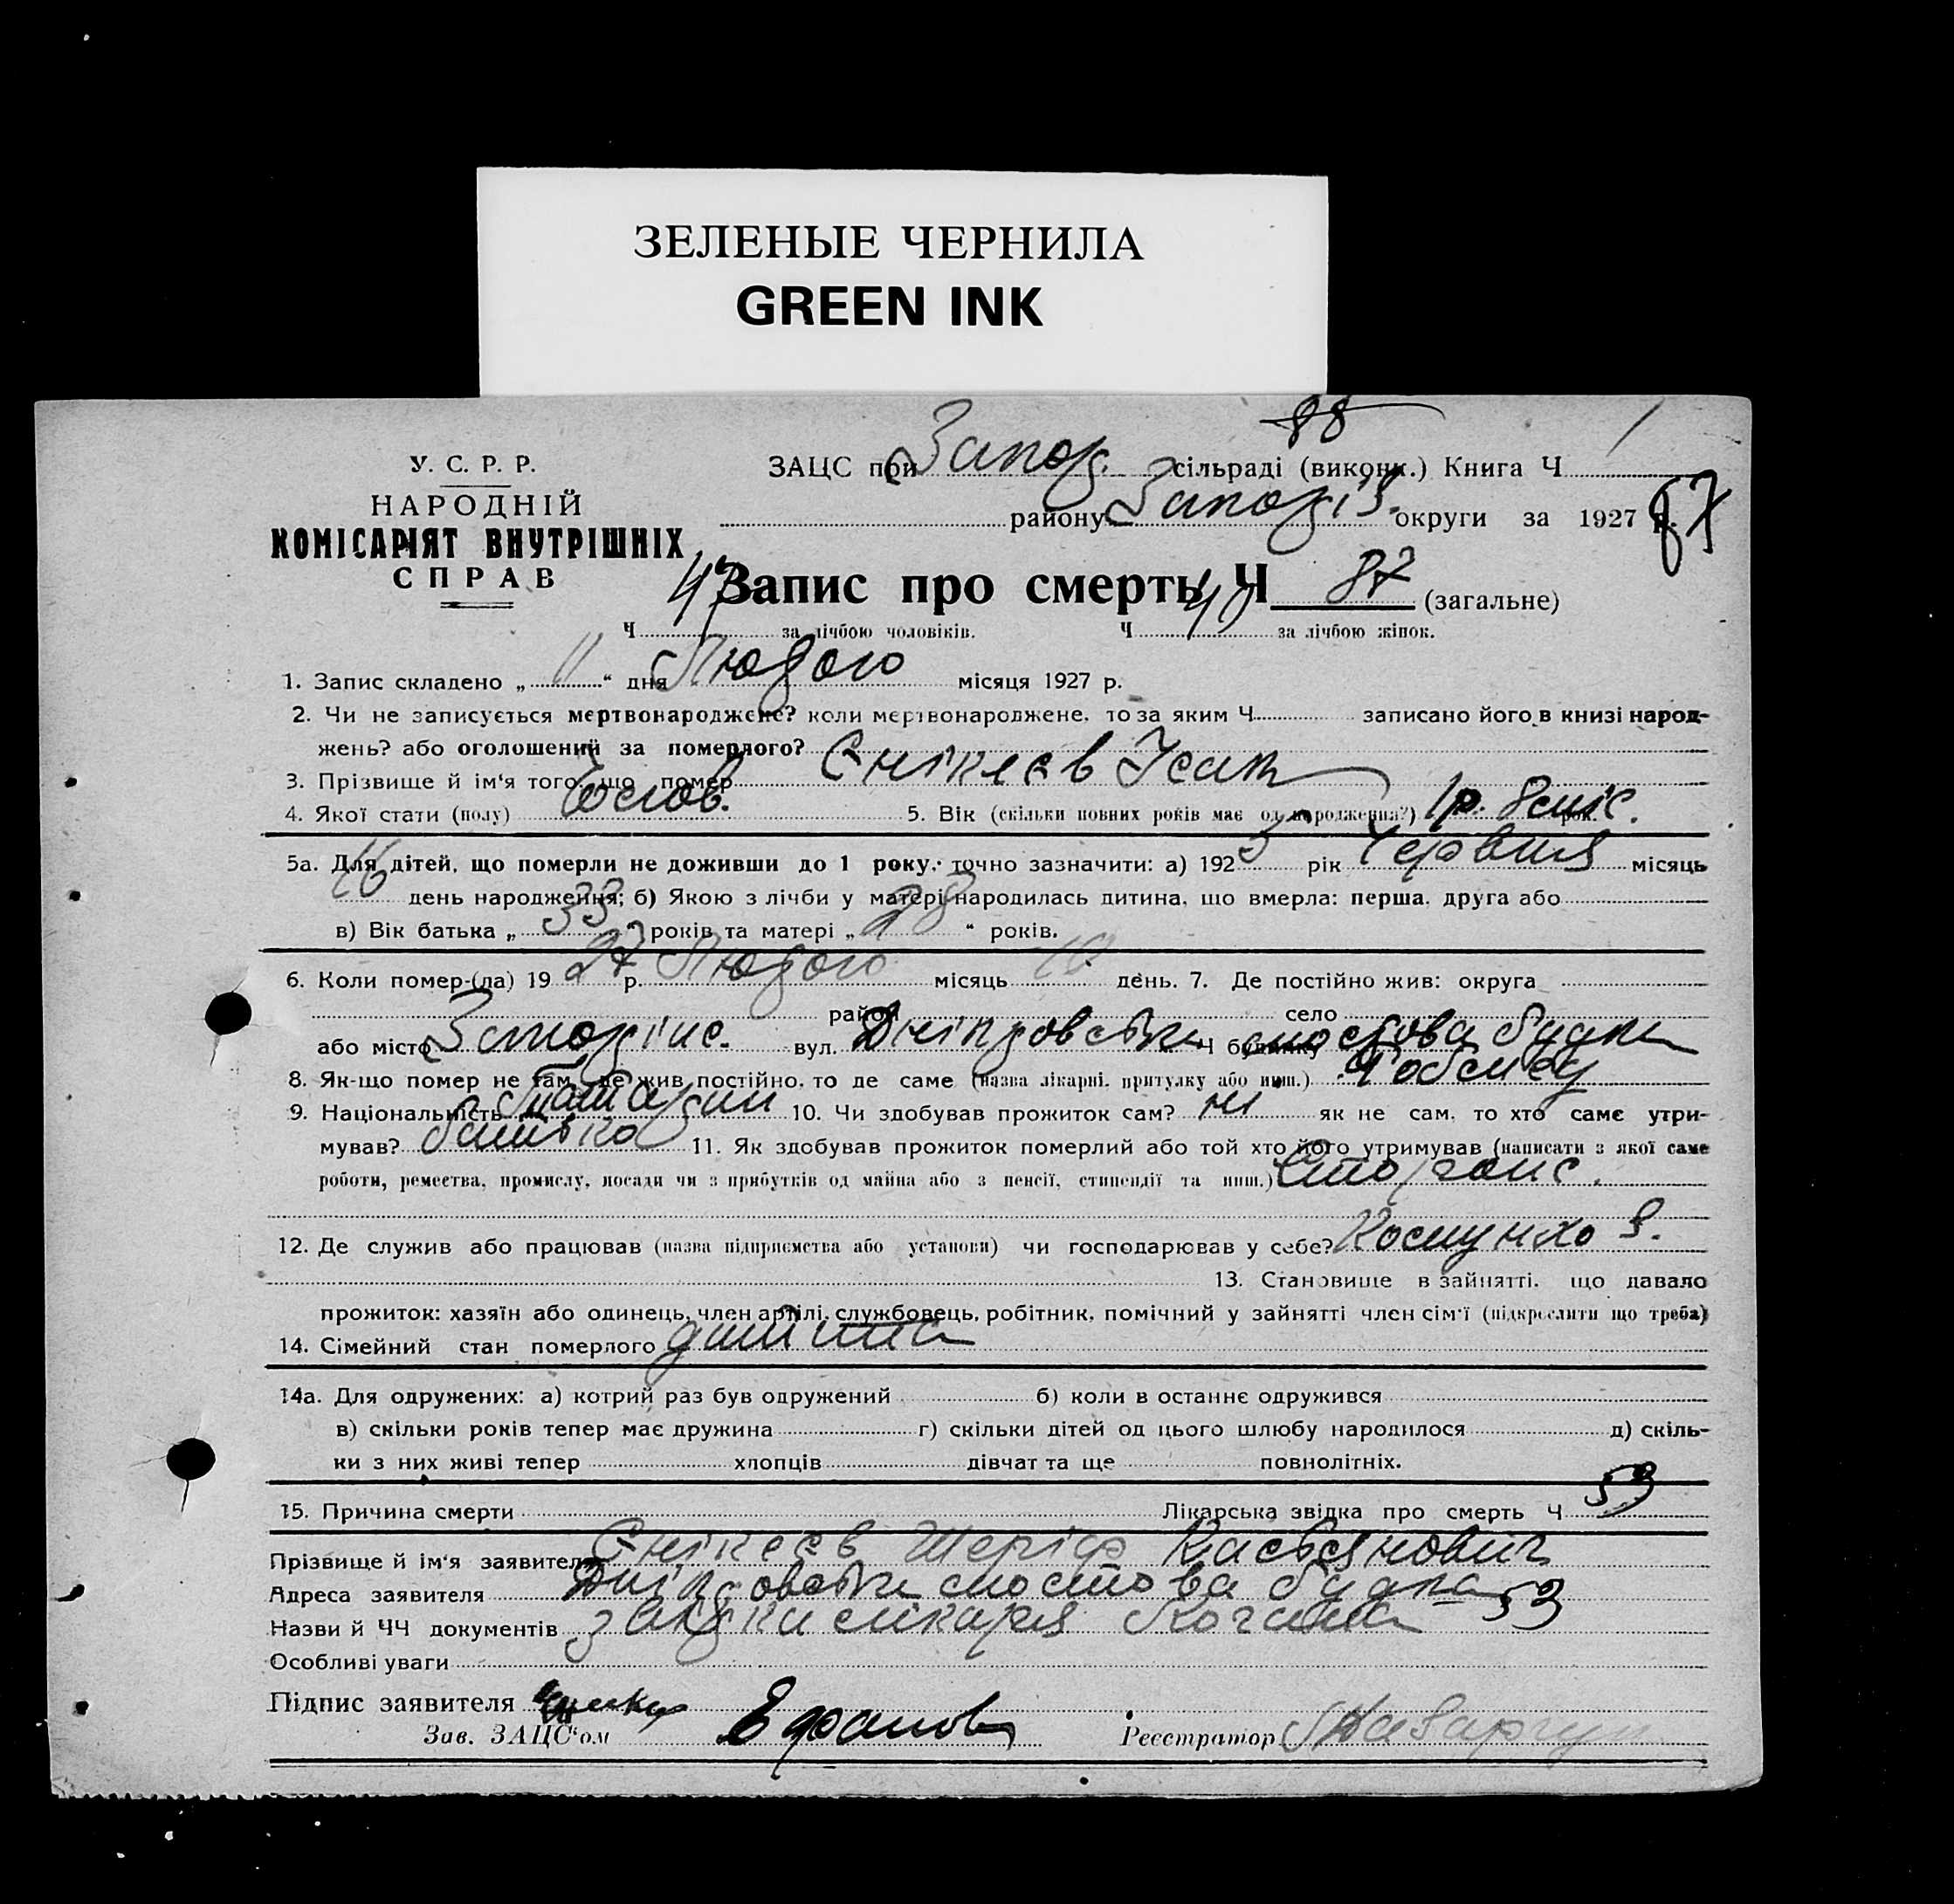 ЗЕЛЕНЫЕ ЧЕРНИЛА
GREEN INK
88
У. С. Р. Р.
НАРОДНІЙ
КОМІСАРІЯТ ВНУТРІШНІХ
СПРАВ
ЗАЦС при Запор. сільраді (викони.) Книга Ч 1
району Запоріз. округи за 1927 р. 87
Запис про смерть Ч 87 (загальне)
Ч 47 за лічбою чоловіків. Ч 40 за лічбою жінок.
1. Запис складено „ 11 “ дня Лютого місяця 1927 р.
2. Чи не записується мертвонароджене? коли мертвонароджене, то за яким Ч записано його в книзі народ-
жень? або оголошений за померлого?
3. Прізвище й ім'я того, що помер Єнікеєв Ісат
4. Якої стати (полу) Чолов. 5. Вік (скільки повних років має од народження?) 1 р. 8 міс. рок.
5а. Для дітей, що померли не доживши до 1 року: точно зазначити: а) 1925 рік Червня місяць
16 день народження; б) Якою з лічби у матері народилась дитина, що вмерла: перша, друга або
в) Вік батька „ 33 “ років та матері „ 28 “ років.
6. Коли помер-(ла) 1927 р. Лютого місяць 10 день. 7. Де постійно жив: округа
район село
або місто вул. Ч будинку мостова будка
8. Як-що помер не там, де жив постійно, то де саме (назва лікарні, притулку або инш.)
9. Національність татарин 10. Чи здобував прожиток сам? ні як не сам, то хто саме утри-
мував? батько 11. Як здобував прожиток померлий або той хто його утримував (написати з якої саме
роботи, ремества, промислу, посади чи з прибутків од майна або з пенсії, стипендії та инш.)
12. Де служив або працював (назва підприємства або установи) чи господарював у себе?
13. Становище в зайнятті, що давало
прожиток: хазяїн або одинець, член артілі, службовець, робітник, помічний у зайнятті член сім'ї (підкреслити що треба)
14. Сімейний стан померлого дитина
14а. Для одружених: а) котрий раз був одружений б) коли в останнє одружився
в) скільки років тепер має дружина г) скільки дітей од цього шлюбу народилося д) скіль-
ки з них живі тепер хлопців дівчат та ще повнолітніх.
15. Причина смерти Лікарська звідка про смерть Ч 53
Прізвище й ім'я заявителя Єнікеєв Шеріф Касьянович
Адреса заявителя мостова будка
Назви й ЧЧ документів лікаря 53
Особливі уваги
Підпис заявителя
Зав. ЗАЦС'ом
Реєстратор